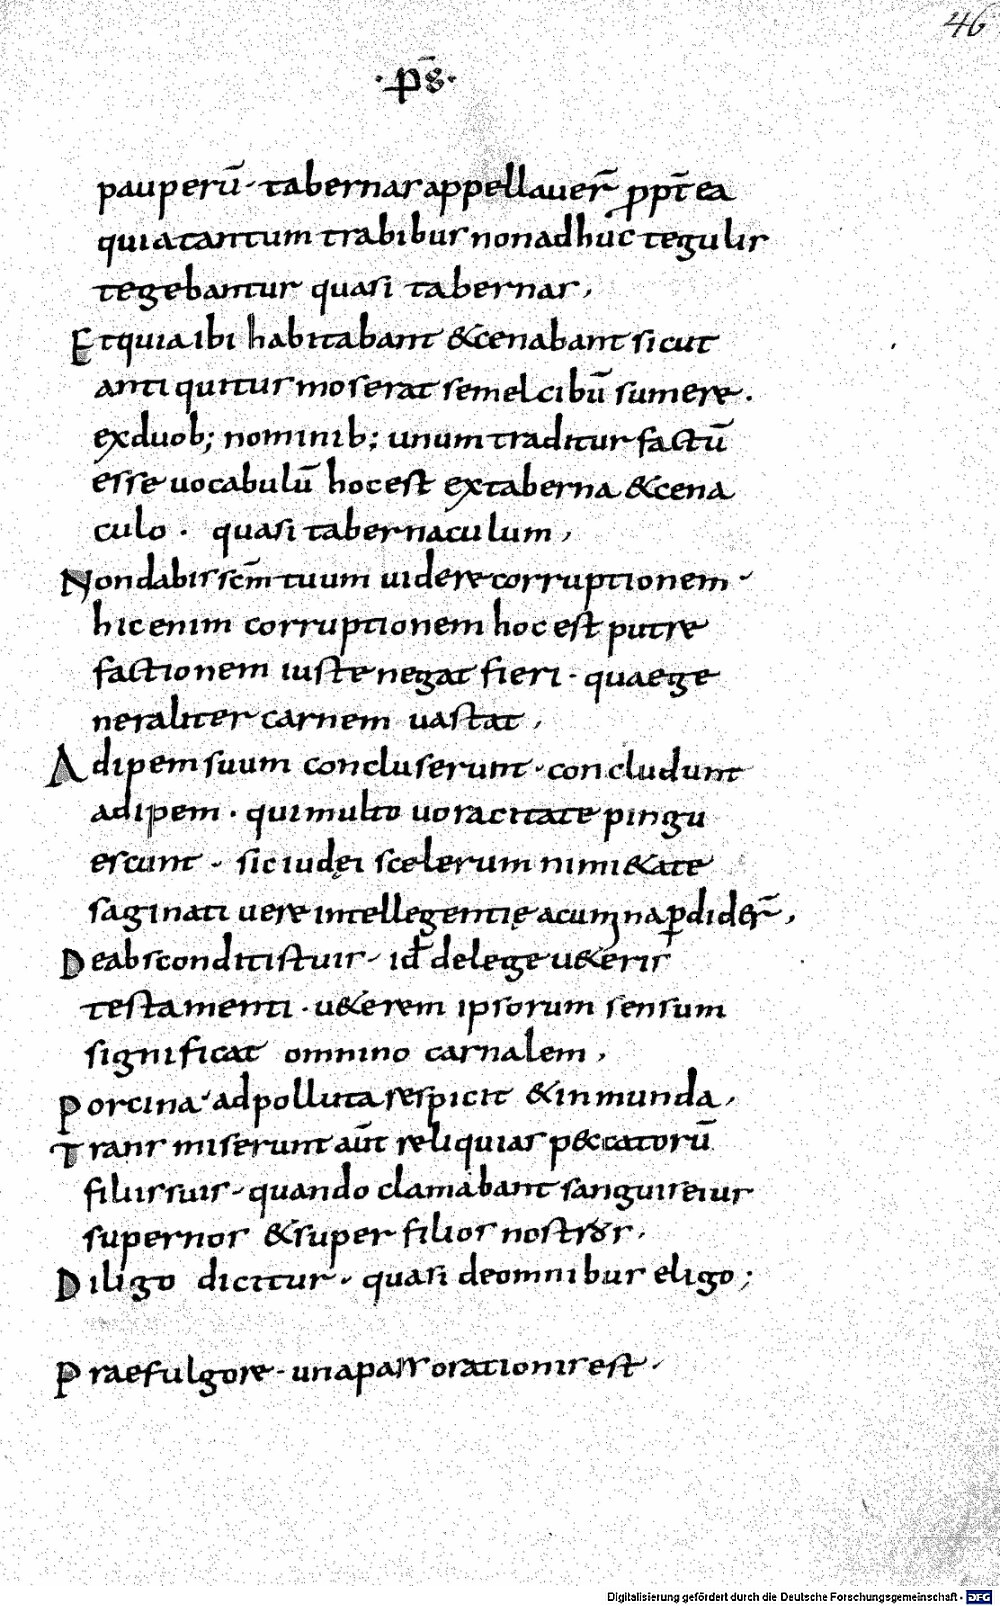 46
· p̄s ·
pauperū · tabernas appellauer̄ ꝓpt̄ ea
quia tantum trabibus non adhuc tegulis
tegebantur quasi tabernas,
Et quia ibi habitabant &cenabant sicut
antiquitus mos erat semel cibū sumere .
ex duob; nominib; unum traditur factū
esse uocabulū hoc est ex taberna &cena
culo . quasi tabernaculum,
Non dabis sc̄m tuum uidere corruptionem ·
hic enim corruptionem hoc est putre
factionem iuste negat fieri · quae ge
neraliter carnem uastat,
Adipem suum concluserunt · concludunt
adipem · qui multo uoracitate pingu
escunt · sic iudęi scelerum nimi&ate
saginati uere intellegentię acumina ꝑdider̄,
De absconditis tuis · id̄ de lege u&eris
testamenti · u&erem ipsorum sensum
significat omnino carnalem,
Porcina · ad polluta respicit &inmunda,
Trans miserunt aūt reliquias peccatorū
filiis suis · quando clamabant sanguis eius
super nos &super filios nostros,
Diligo dicitur · quasi de omnibus eligo;
Prae fulgore · una pars orationis est ·
Digitalisierung gefördert durch die Deutsche Forschungsgemeinschaft · DFG